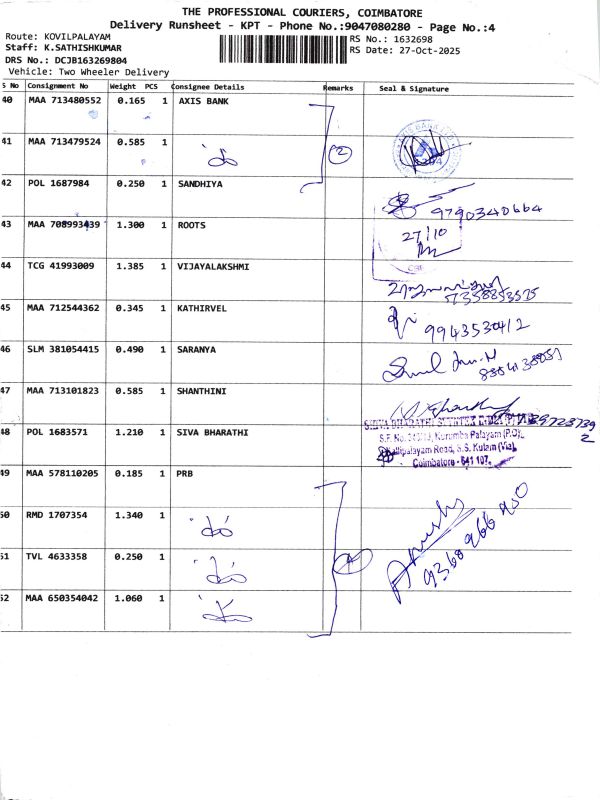 THE PROFESSIONAL COURIERS, COIMBATORE
Delivery Runsheet - KPT - Phone No.:9047080280 - Page No.:4
Route: KOVILPALAYAM
RS No.: 1632698
Staff: K.SATHISHKUMAR
RS Date: 27-Oct-2025
DRS No.: DCJB163269804
Vehicle: Two Wheeler Delivery
S No Consignment No Weight PCS Consignee Details Remarks Seal & Signature
40 MAA 713480552 0.165 1 AXIS BANK
41 MAA 713479524 0.585 1
2
42 POL 1687984 0.250 1 SANDHIYA
9790340664
43 MAA 708993439 1.300 1 ROOTS
27/10
44 TCG 41993009 1.385 1 VIJAYALAKSHMI
7358853575
45 MAA 712544362 0.345 1 KATHIRVEL
9943530412
46 SLM 381054415 0.490 1 SARANYA
47 MAA 713101823 0.585 1 SHANTHINI
48 POL 1683571 1.210 1 SIVA BHARATHI
Kurumba Palayam (P.O),
Road, S.S. Kulam (Via),
Coimbatore - 641 107.
49 MAA 578110205 0.185 1 PRB
50 RMD 1707354 1.340 1
51 TVL 4633358 0.250 1
4
52 MAA 650354042 1.060 1
9360966950